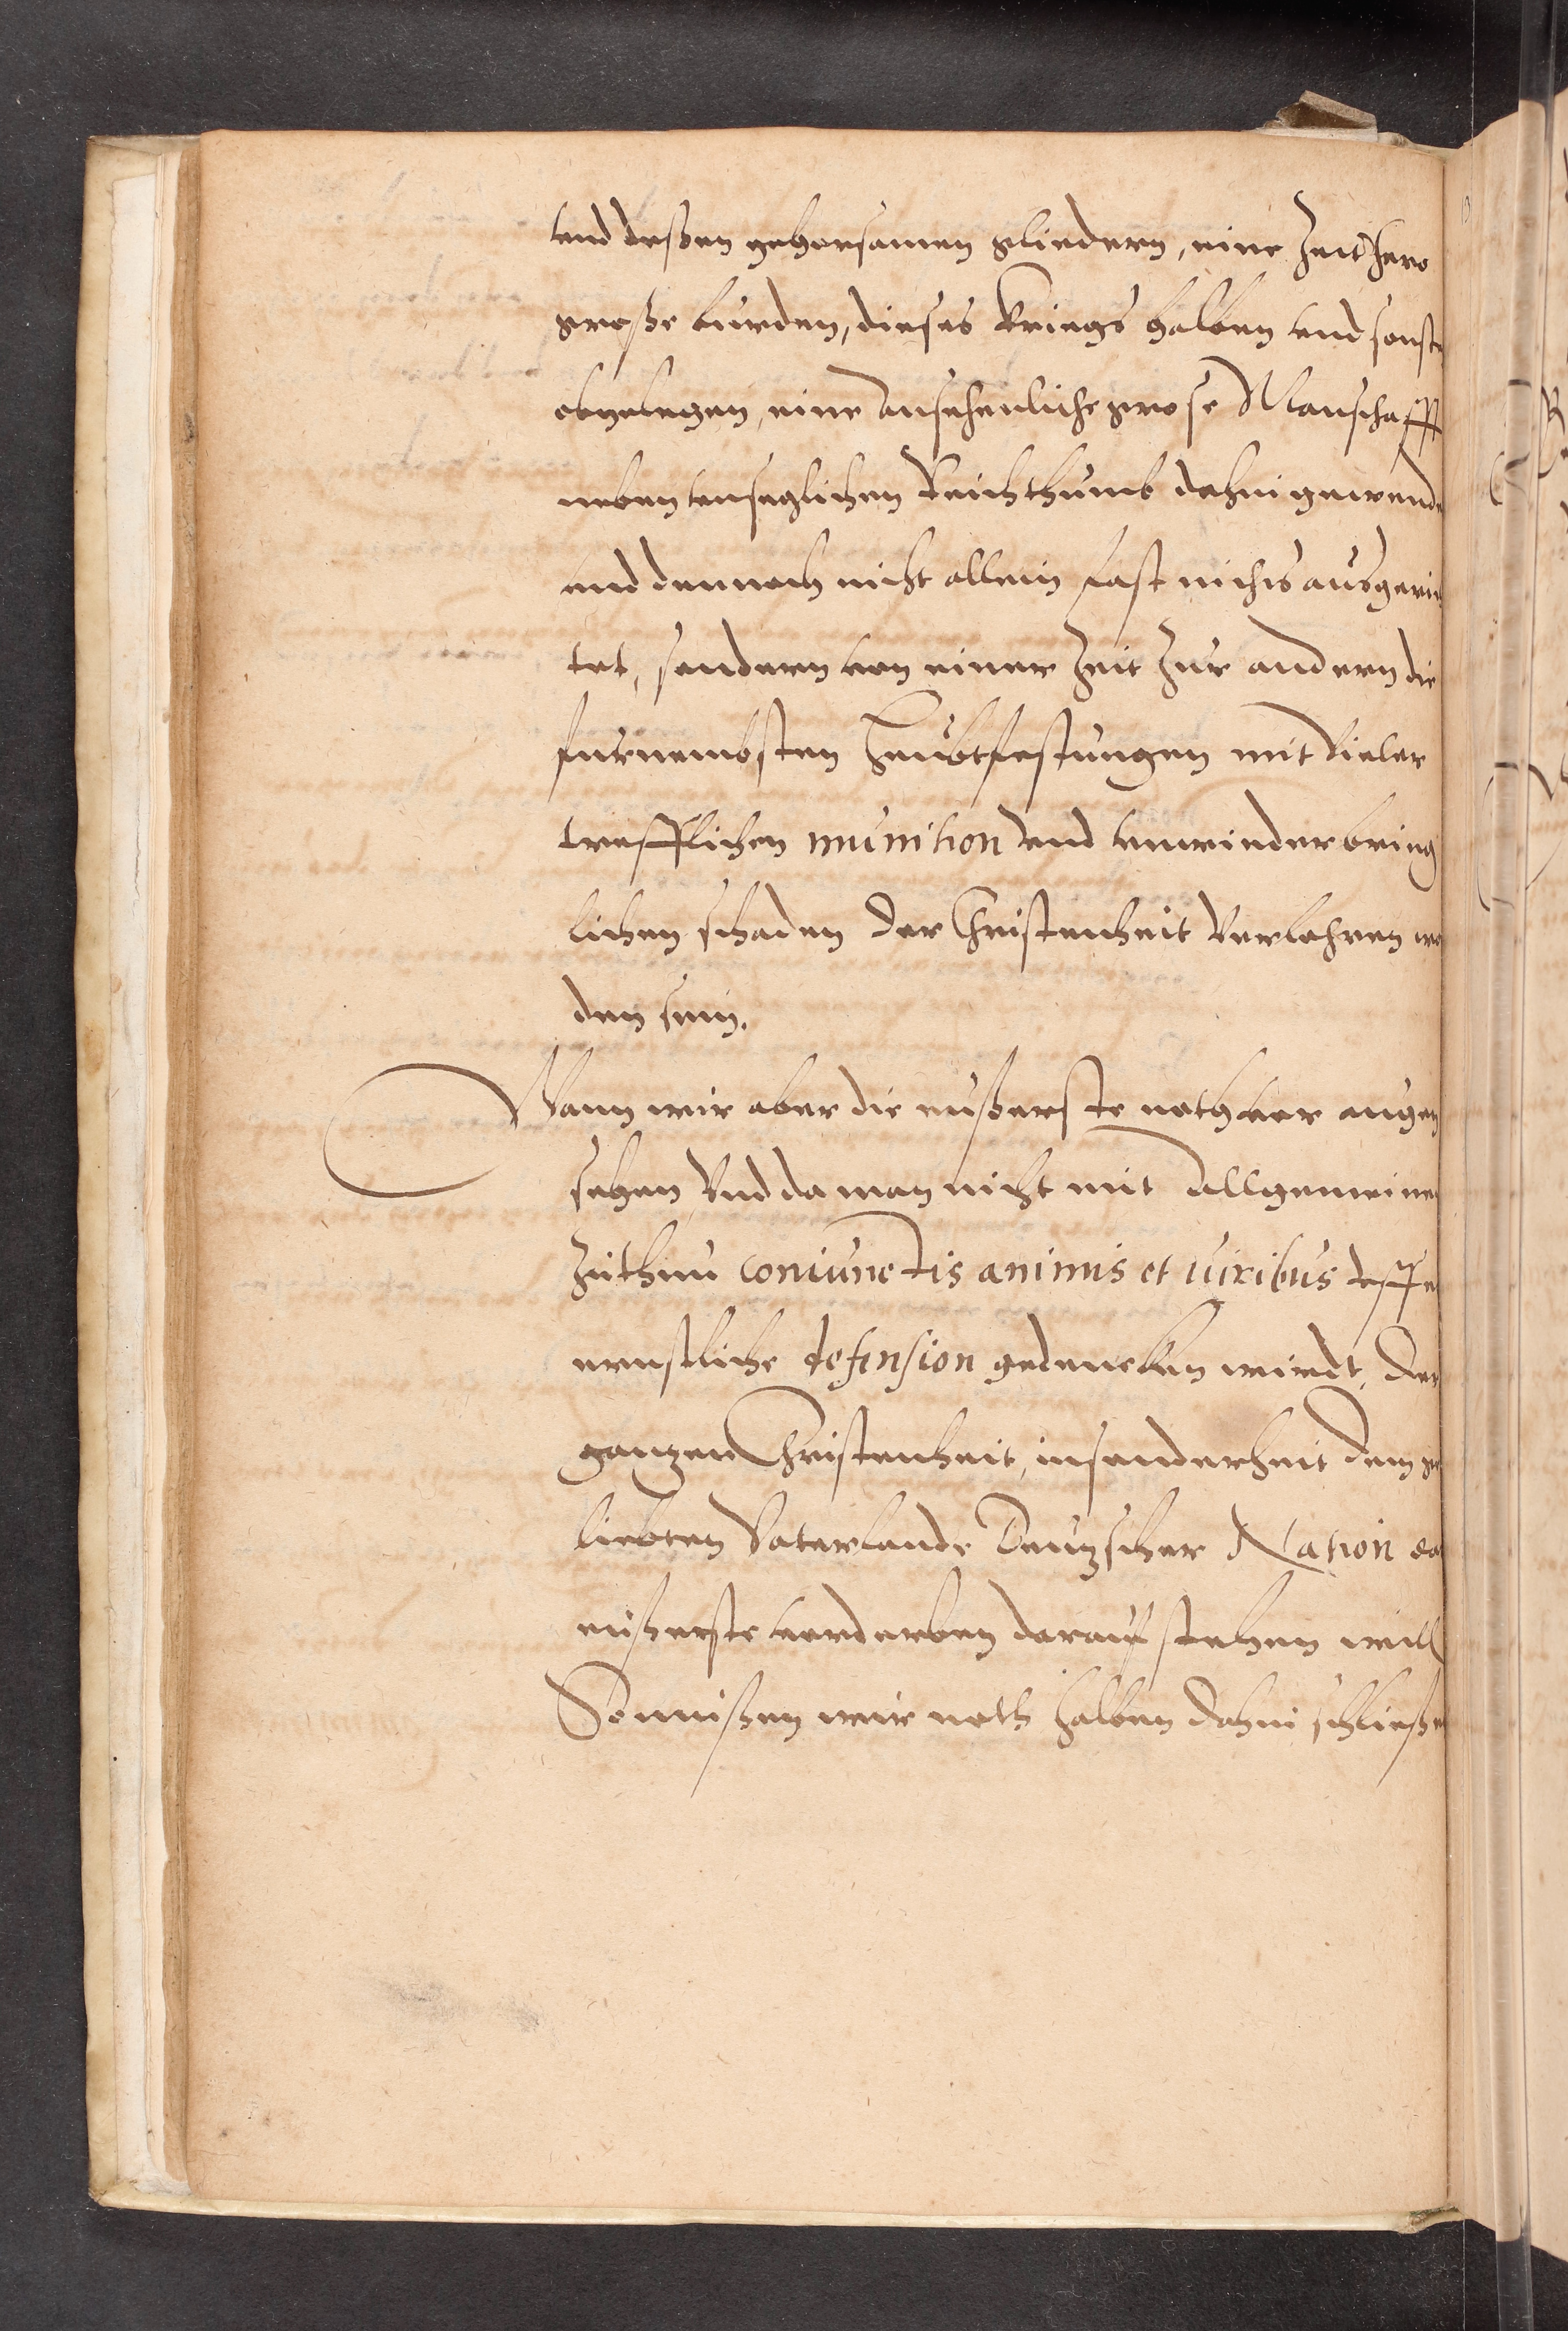 vnd deßen gehorsamen gliedern, eine Zeit hero
große burden, dieses Kriegs halben vnd sonste
obgelegen, eine Ansehenliche grose Manschafft
neben vnseglichen Reichthumb dahin gewende
vnd dennoch nicht allein fast nichts ausgerich
tet, sondern von einer Zeit Zur andern die
furnembsten Heubtfestungen mit Vieler
trefflichen munition Vnd vnwiederbring
lichen schaden der Christenheit Verlohren wor
den sein.
Wann wir aber die eußerste noth vor augen
sehen Vnd da man nicht mit Allgemeinen
Zuthun coniunctis animis et viribus deffe
ernstliche defension gedencken wirdt, der
gantzen Christenheit, insonderheit dem ge
liebten Vaterlande Deutzscher Nation das
eußerste verderben darauf stehen will
So müßen wir noth halben dahin schließen